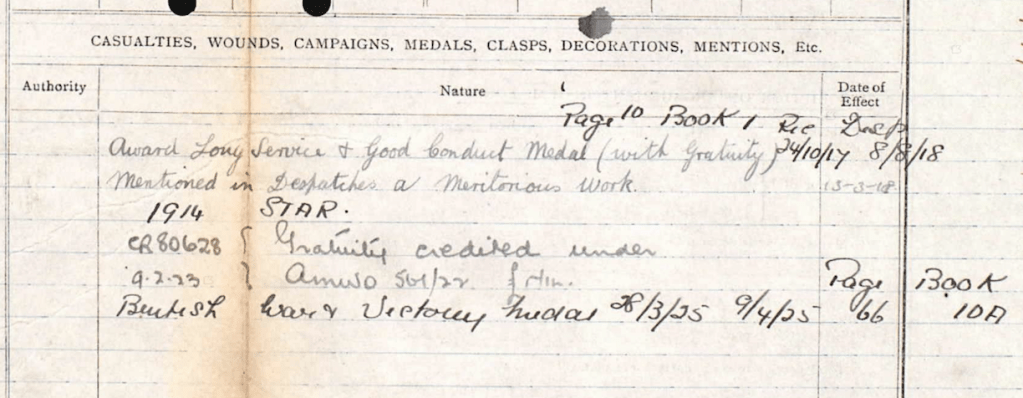 CASUALTIES, WOUNDS, CAMPAIGNS, MEDALS, CLASPS, DECORATIONS, MENTIONS, Etc.
Authority Nature Date of Effect
Page 10 BOOK 1 Rec Desp
Award Long Service & Good Conduct Medal (with Gratuity) 24/10/17 8/8/18
Mentioned in Despatches a Meritorious Work. 13-3-18
1914 STAR.
CR80628 { Gratuity credited under
9.2.23 } AMWO 561/22
Page BOOK
British War & Victory Medal 28/3/25 9/4/25 66 10A